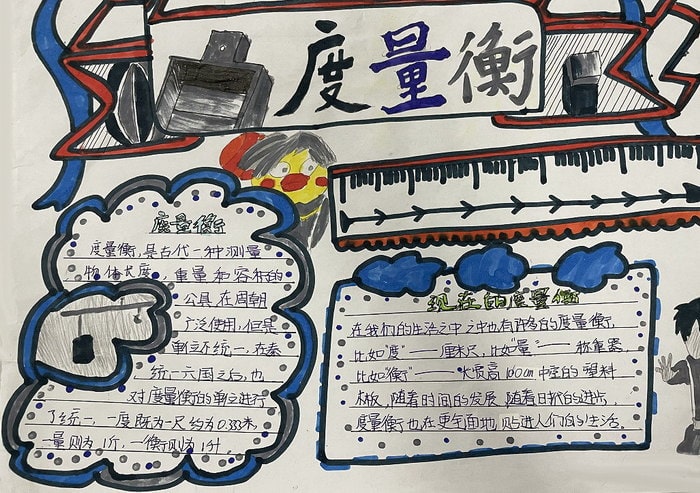 度量衡
度量衡
度量衡,是古代一种测量
物体长度,重量和容积的
公具在周朝
广泛使用,但其
单位不统一,在秦
统一六国之后,也
对度量衡的单位进行
了统一,一度既为一尺约为0.333米,
一量则为1斤,一衡则为1升。
现在的度量衡
在我们的生活之中之中也有许多的度量衡,
比如"度"——厘米尺,比如"量"——称重器,
比如"衡"——大度高100cm中空的塑料
木板,随着时间的发展,随着日新的进步,
度量衡也在更全面地,贴进人们的生活。